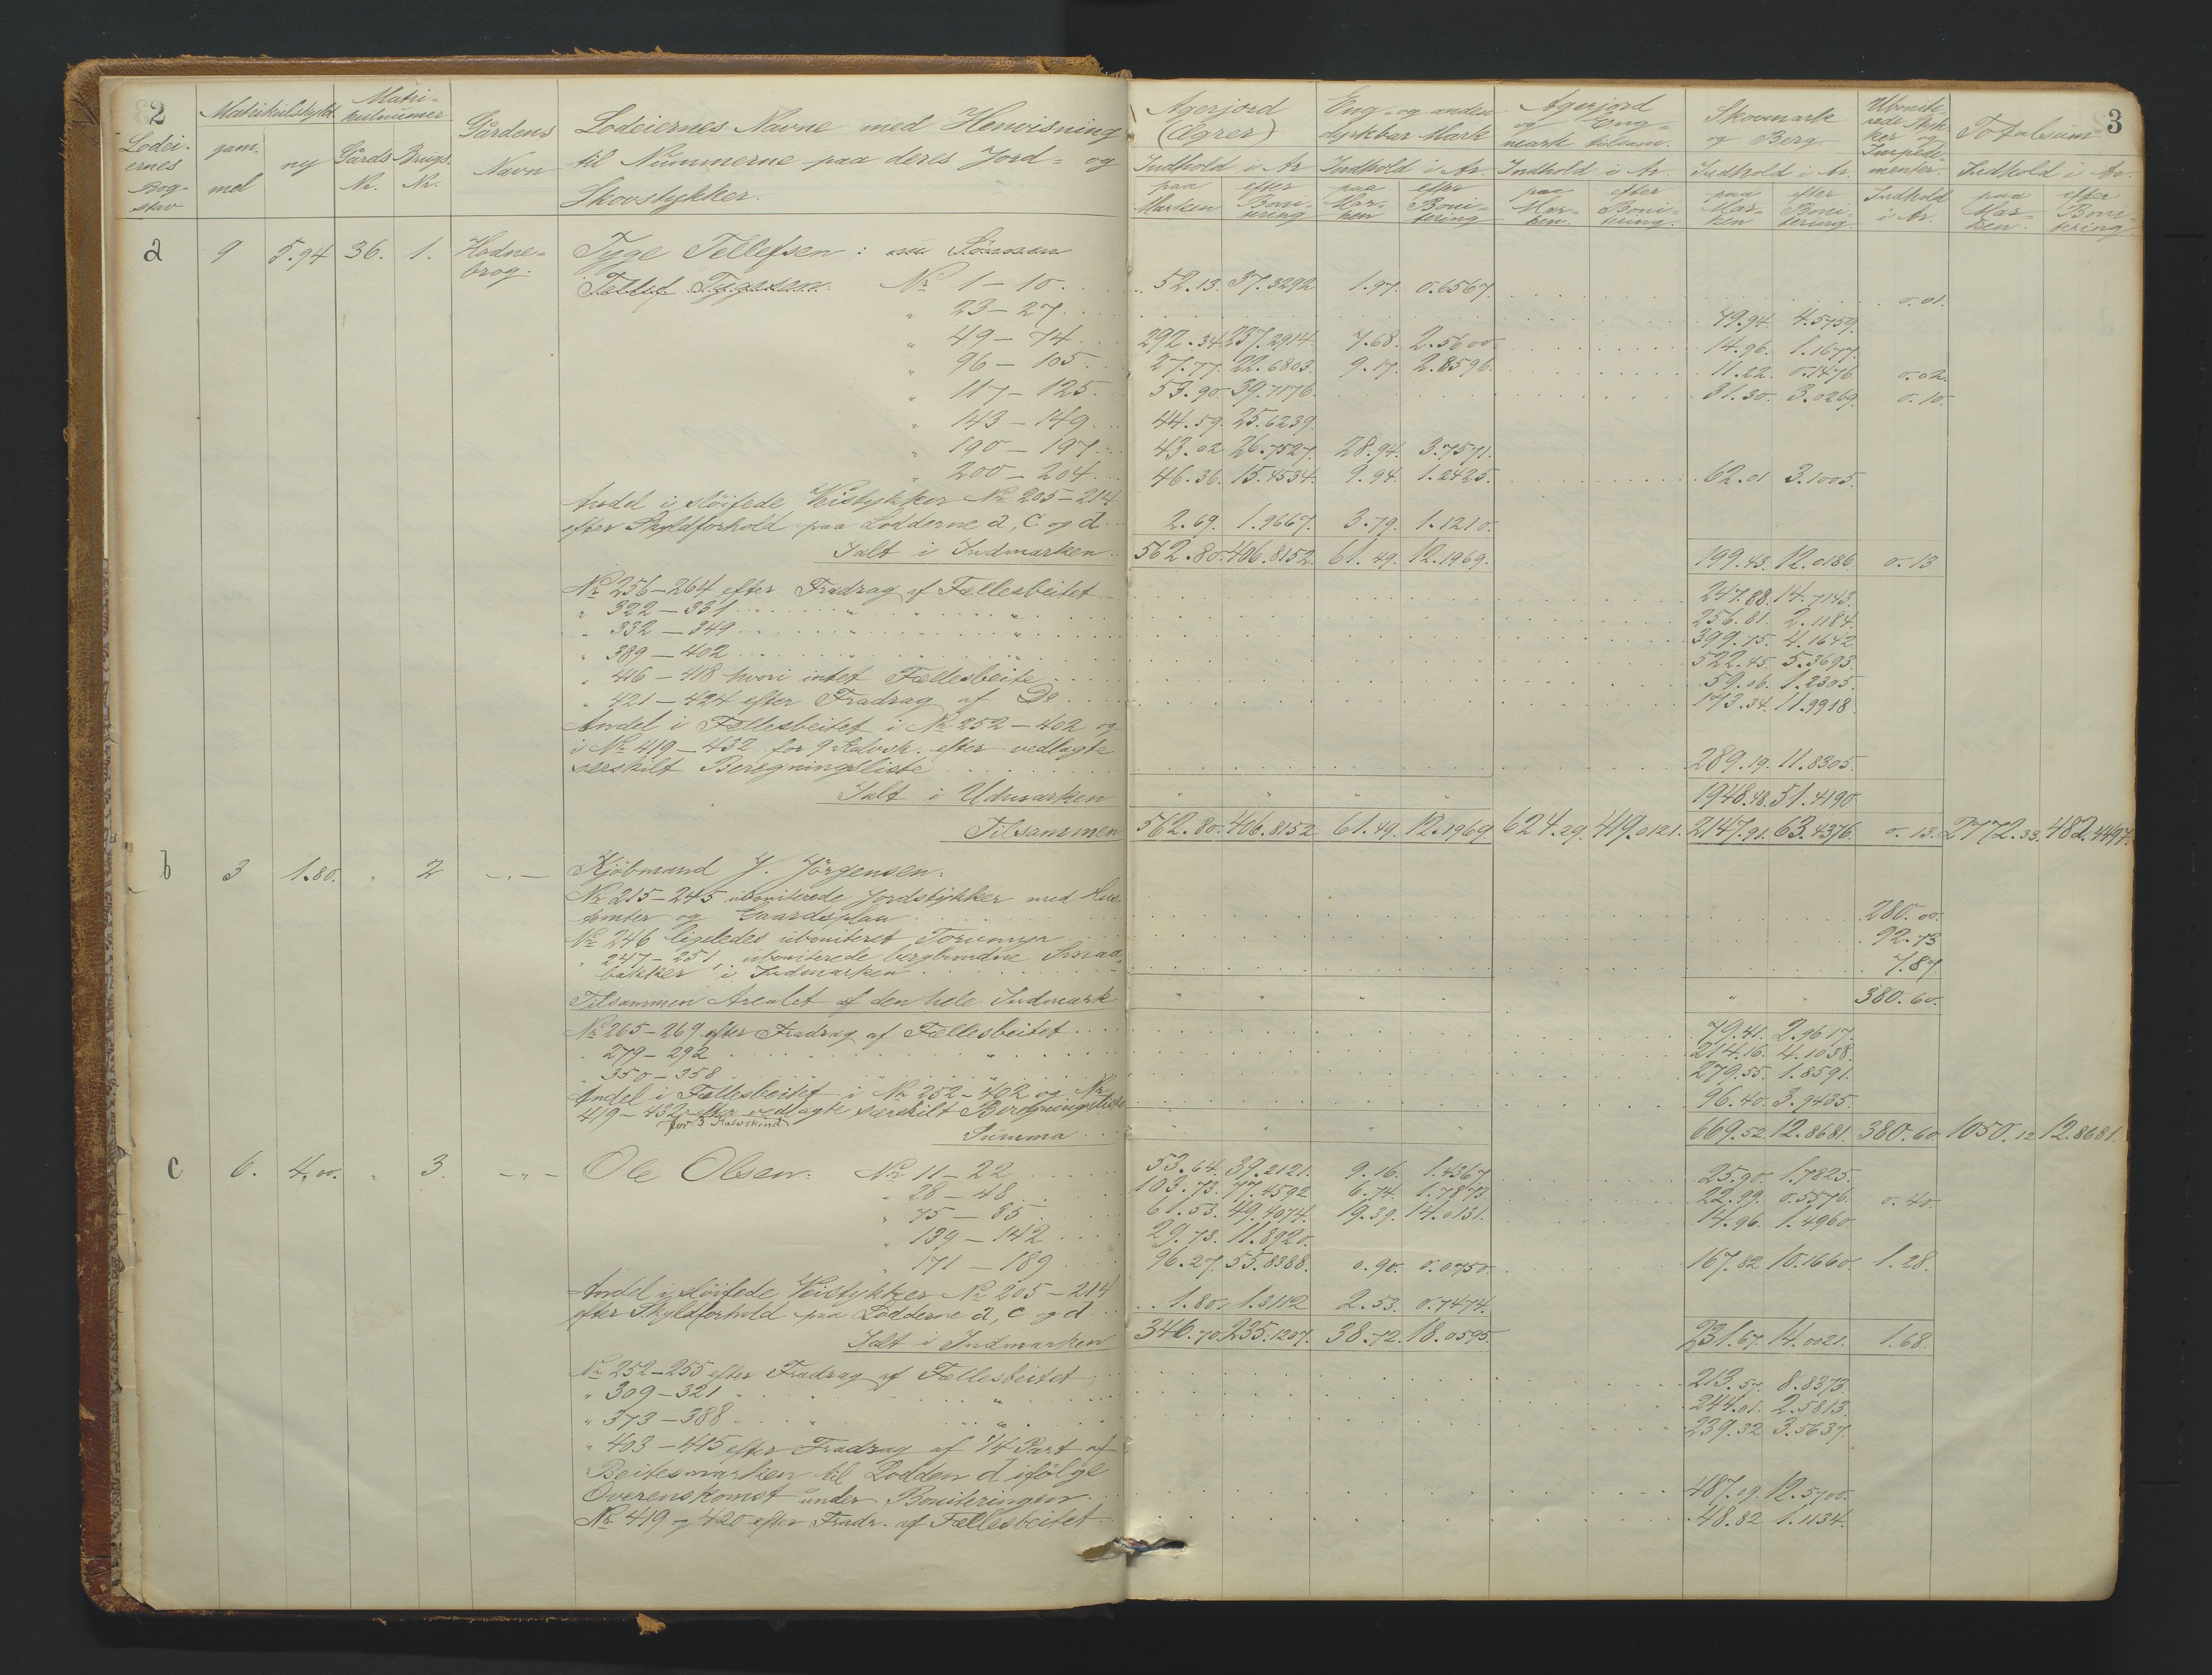 2
Matrikulskyld.
Matri-
kulnumer
Lodei-
ernes
Bog-
stav
gam-
mel
ny
Gårds
Nr.
Brugs
Nr.
Gårdens
Navn
Lodeiernes Navne med Henvisning
til Nummerne paa deres Jord- og
Skovstykker.
Agerjord
(Agrer)
Eng- og anden
dyrkbar Mark
Agerjord
og Eng-
mark tilsam.
Skovmark
og Berg
Ubonite-
rede Styk-
ker og
Impedi-
menter.
Totalsum
3
Indhold i Ar
Indhold i Ar.
Indhold i Ar.
Indhold i Ar.
Indhold
i Ar.
Indhold i Ar.
paa
Marken
efter
Boni-
tering
paa
Mar-
ken
efter
Boni-
tering
paa
Mar-
ken.
efter
Boni-
tering.
paa
Mar-
ken
efter
Boni-
tering.
paa
Mar-
ken.
efter
Boni-
tering.
a 9 5.94 36. 1. Hodne-
brog.
Tyge Tellefsen: nu Sönnen
Tellef Tygesen. Nr. 1 — 10. 52.13. 37.3292 1.97. 0.6567. 0.01.
" 23 — 27. 79.94. 4.5759.
" 49 — 74 292.34. 237.2914. 7.68. 2.5600. 14.96. 1.1677.
" 96 — 105. 27.77. 22.6803. 9.17. 2.8596. 11.22. 0.1476 0.02.
" 117 — 125. 53.90. 39.7176. 31.30. 3.0269. 0.10.
" 143 — 149. 44.59. 25.6239.
" 190 — 197. 43.02 26.7527. 28.94. 3.7571.
" 200 — 204. 46.36. 15.4534. 9.94. 1.2425. 62.01 3.1005.
Andel i slöifede Veistykker Nr. 205 — 214
efter Skyldforhold paa Lodderne a, c og d. 2.69. 1.9667. 3.79. 1.1210.
Ialt i Indmarken 562.80. 406.8152. 61.49. 12.1969. 199.43. 12.0186. 0.13
Nr. 256 — 264 efter Fradrag af Fællesbeitet 247.88. 14.7143.
" 322 — 331 256.81. 2.1184.
" 332 — 349 399.75. 4.1642.
" 389 — 402 522.45. 5.3693.
" 416 — 418 hvori intet Fællesbeite 59.06. 1.2305.
" 421 — 424 efter Fradrag af Do 173.34. 11.9918.
Andel i Fællesbeitet i Nr. 252 — 402 og
i Nr. 419 — 432 for 9 Kalvsk. efter vedlagte
særskilt Beregningsliste 289.19. 11.8305.
Ialt i Udmarken " " " " 1948.48. 51.4190
Tilsammen 562.80. 406.8152 61.49. 12.1969. 624.29. 419.0121. 2147.91. 63.4376. 0.13. 2772.33. 482.4497.
b 3 1.80. " 2 —"—
Kjöbmand J. Jörgensen.
Nr. 215 — 245 uboniterede Jordstykker med Hus-
tomter og Gaardsplan 280.00.
Nr. 246 ligeledes uboniteret Torvmyr 92.73
" 247 — 251, uboniterede bergbundne Smaa-
bakker i Indmarken 7.87
Tilsammen Arealet af den hele Indmark " " " " " " 380.60.
Nr. 265 — 269 efter Fradrag af Fællesbeitet 79.41. 2.9617.
" 279 — 292 214.16. 4.1038.
" 350 — 358 279.55. 1.8591.
Andel i Fællesbeitet i Nr. 252 — 402 og Nr.
419 — 432 efter vedlagte særskilt Beregningsliste 96.40. 3.9435.
for 3 Kalvskind
Summa " " " " 669.52. 12.8681. 380.60. 1050.12 12.8681.
c 6. 4.00. " 3. —"—
Ole Olsen. Nr. 11 — 22 53.64. 39.2121. 9.16. 1.4367. 25.90. 1.7825.
" 28 — 48 103.73. 77.4592 6.74. 1.7873. 22.99. 0.5576. 0.40.
" 75 — 85 61.53. 49.4074. 19.39. 14.0131. 14.96. 1.4960.
" 139 — 142 29.73. 11.8920.
" 171 — 189 96.27. 55.8388. 0.90. 0.0750. 167.82 10.1660. 1.28.
Andel i slöifede Veistykker Nr. 205 — 214
efter Skyldforhold paa Lodderne a, c og d 1.80. 1.3112 2.53. 0.7474.
Ialt i Indmarken 346.70. 235.1207. 38.72. 18.0595. 231.67. 14.0021. 1.68.
Nr. 252 — 255 efter Fradrag af Fællesbeitet 213.57. 8.8373.
" 309 — 321 244.01. 2.5813.
" 373 — 388 239.32 3.5637.
" 403 — 415 efter Fradrag af 1/4 Part af
Beitesmarken til Lodden d ifölge
Overenskomst under Boniteringen. 487.09. 12.5700.
Nr. 419 og 420 efter Fradr. af Fællesbeitet 48.82 1.1134.